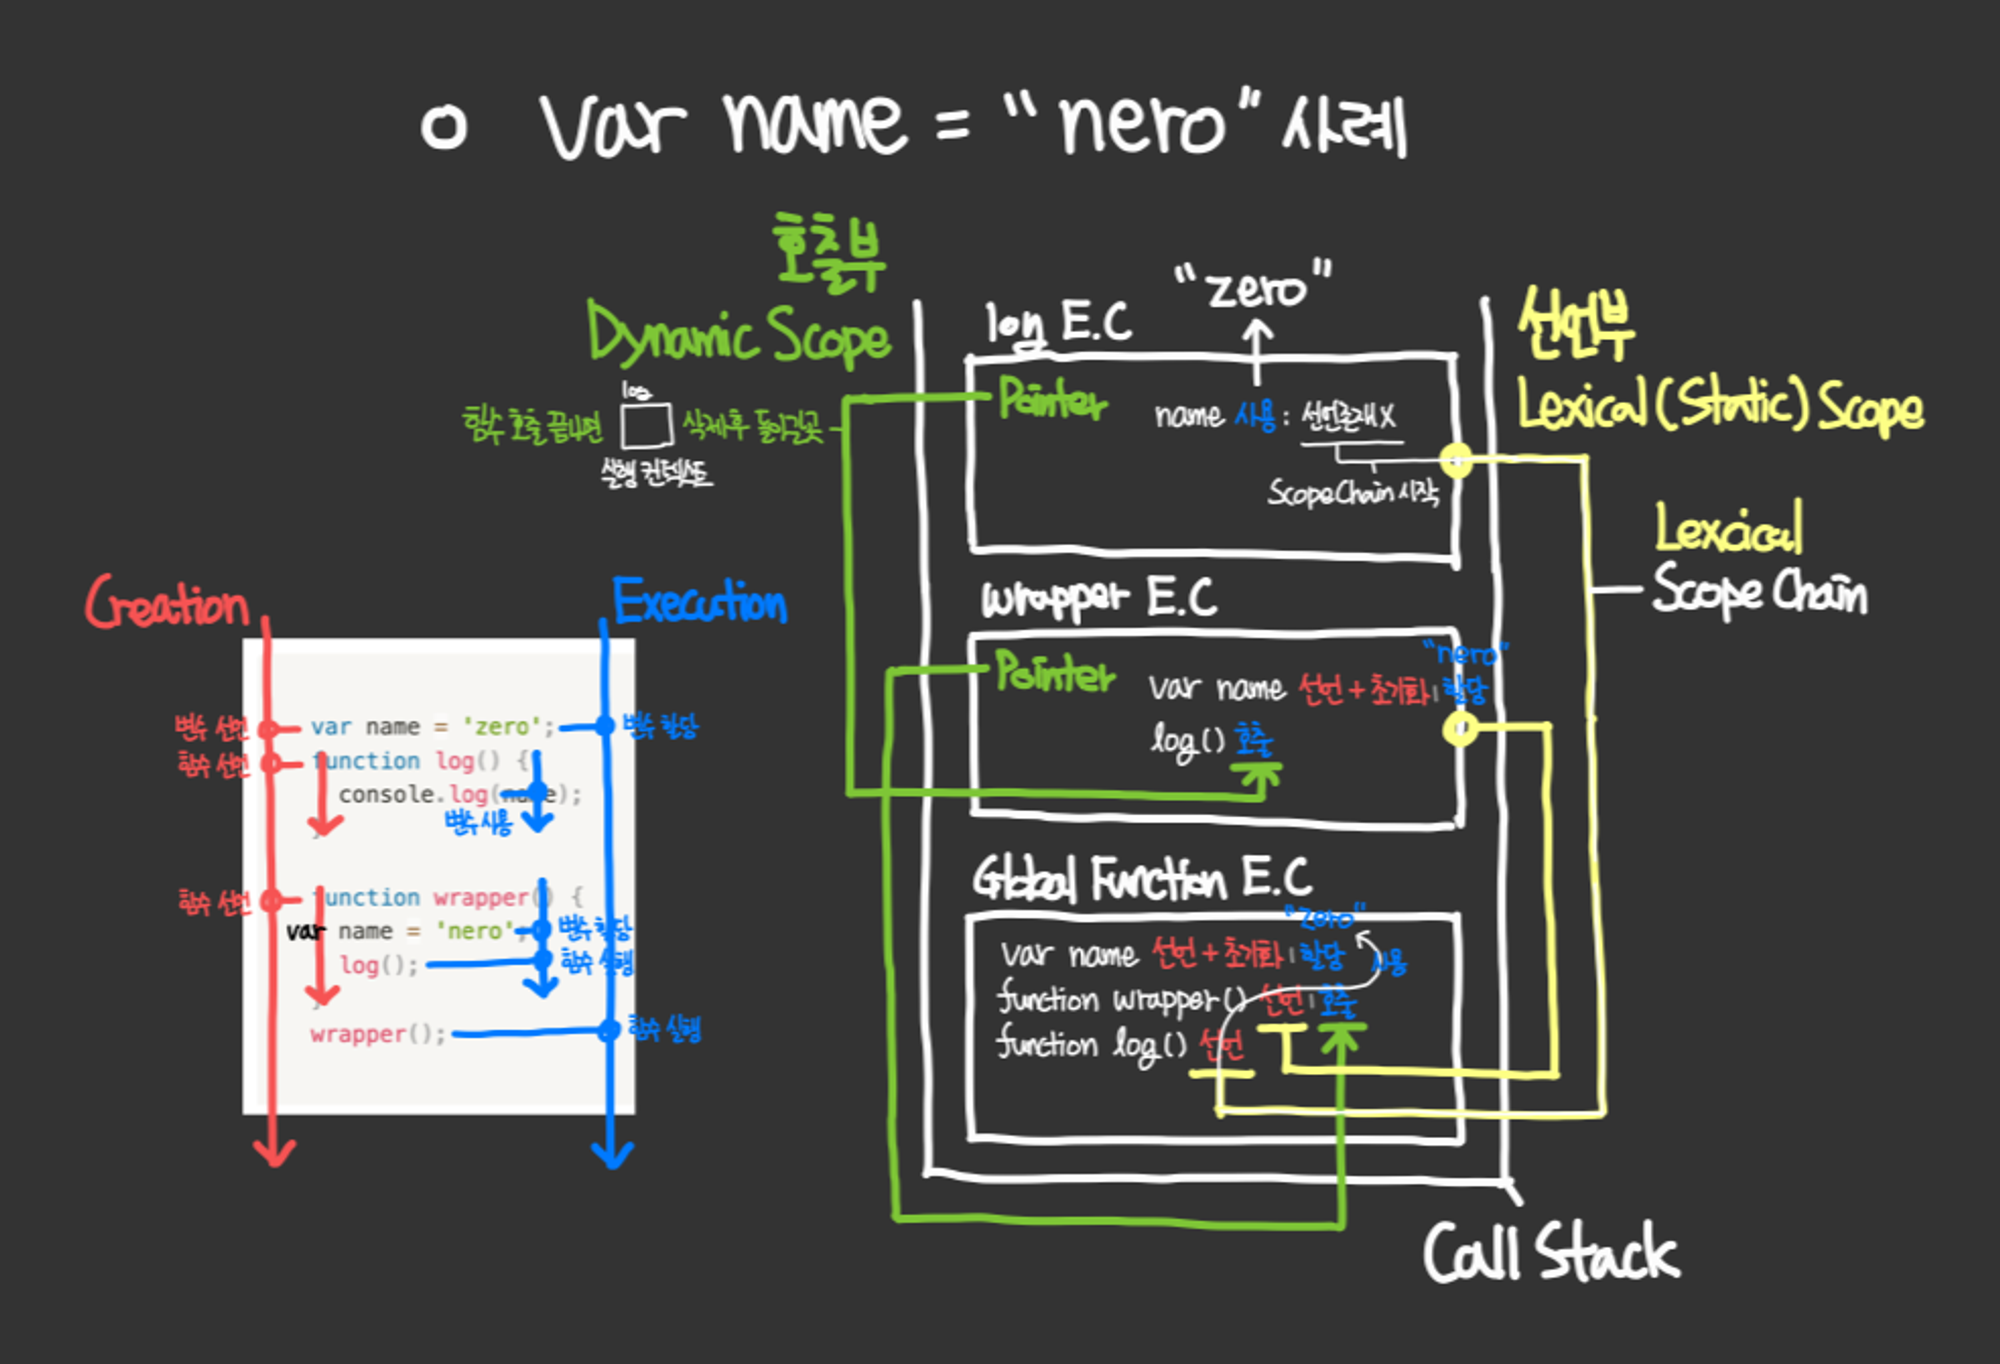 o var name = "nero" 사례
호출부
Dynamic Scope
log
함수 호출 끝나면
삭제후 돌아갈곳
실행 컨텍스트
Creation
Execution
변수 선언
var name = 'zero';
변수 할당
함수 선언
function log() {
console.log(name);
변수 사용
}
함수 선언
function wrapper() {
var name = 'nero';
변수 할당
log();
함수 실행
}
wrapper();
함수 실행
"zero"
log E.C
Pointer
name 사용 : 선언존재X
ScopeChain 시작
wrapper E.C
Pointer
"nero"
var name 선언 + 초기화 | 할당
log() 호출
Global Function E.C
"zero"
var name 선언 + 초기화 | 할당
사용
function wrapper() 선언 | 호출
function log() 선언
선언부
Lexical (Static) Scope
Lexcical
Scope Chain
Call Stack